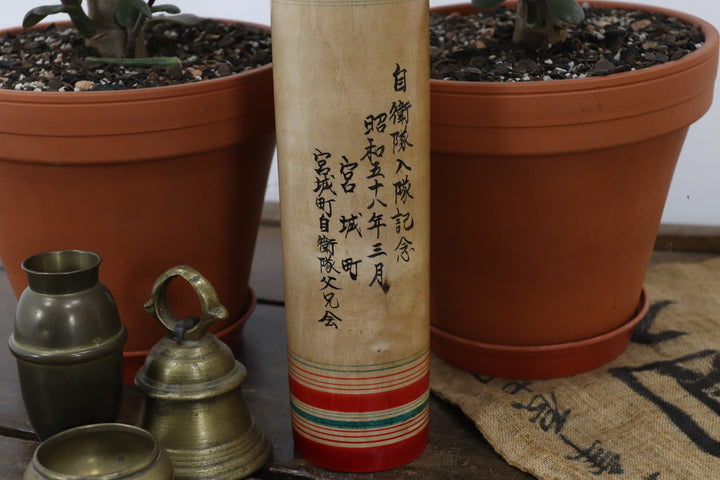 自衛隊入隊記念
昭和五十八年三月
宮城町
宮城町自衛隊父兄会